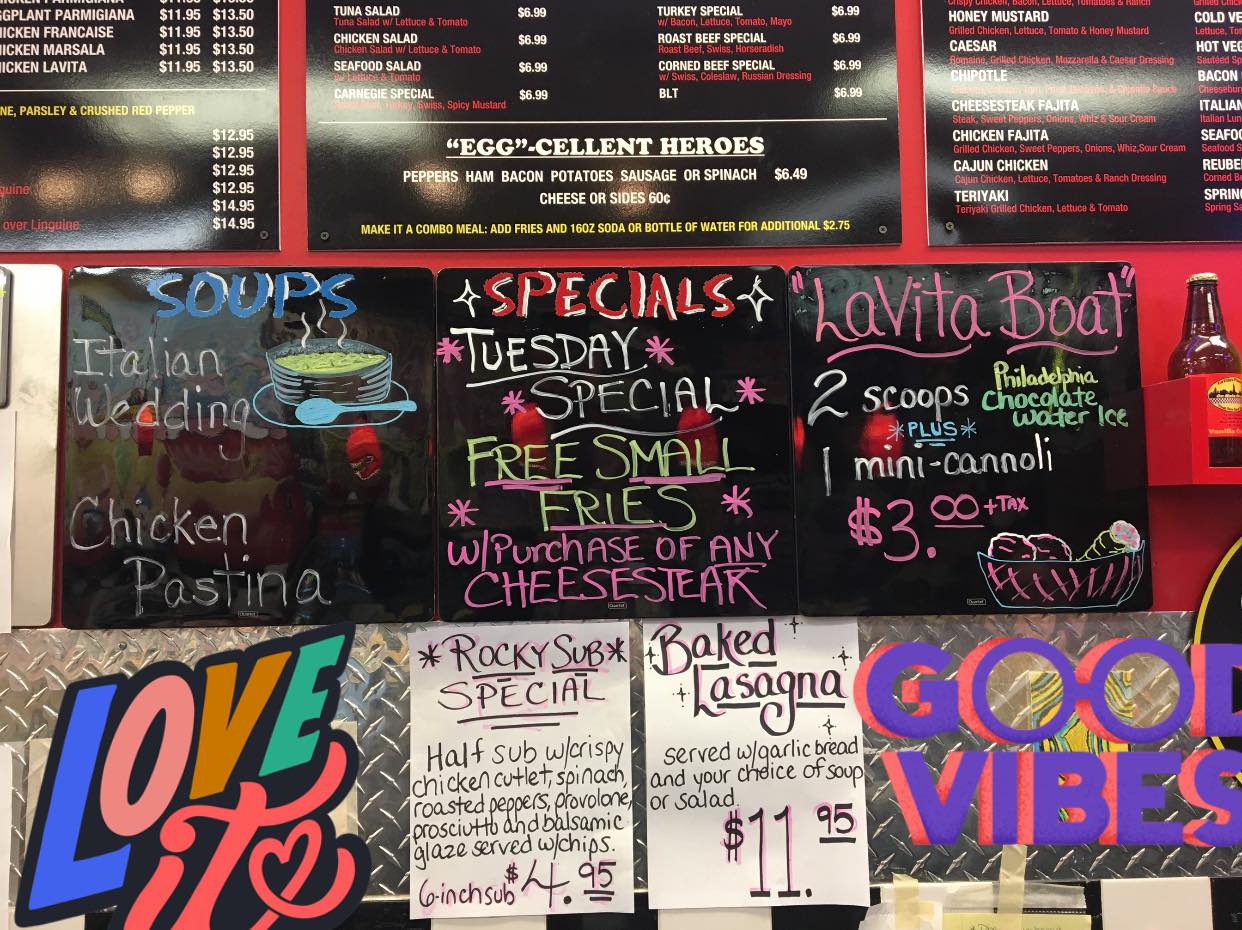 EGGPLANT PARMIGIANA $11.95 $13.50
CHICKEN FRANCAISE $11.95 $13.50
CHICKEN MARSALA $11.95 $13.50
CHICKEN LAVITA $11.95 $13.50
PARSLEY & CRUSHED RED PEPPER
$12.95
$12.95
$12.95
$12.95
$14.95
over Linguine $14.95
TUNA SALAD $6.99
Tuna Salad w/ Lettuce & Tomato
CHICKEN SALAD $6.99
Chicken Salad w/ Lettuce & Tomato
SEAFOOD SALAD $6.99
w/ Lettuce & Tomato
CARNEGIE SPECIAL $6.99
Roast Beef, Turkey, Swiss, Spicy Mustard
TURKEY SPECIAL $6.99
w/ Bacon, Lettuce, Tomato, Mayo
ROAST BEEF SPECIAL $6.99
Roast Beef, Swiss, Horseradish
CORNED BEEF SPECIAL $6.99
w/ Swiss, Coleslaw, Russian Dressing
BLT $6.99
“EGG”-CELLENT HEROES
PEPPERS HAM BACON POTATOES SAUSAGE OR SPINACH $6.49
CHEESE OR SIDES 60¢
MAKE IT A COMBO MEAL: ADD FRIES AND 16OZ SODA OR BOTTLE OF WATER FOR ADDITIONAL $2.75
Crispy Chicken, Bacon, Lettuce, Tomatoes & Ranch
HONEY MUSTARD
Grilled Chicken, Lettuce, Tomato & Honey Mustard
CAESAR
Romaine, Grilled Chicken, Mozzarella & Caesar Dressing
CHIPOTLE
CHEESESTEAK FAJITA
Steak, Sweet Peppers, Onions, Whiz & Sour Cream
CHICKEN FAJITA
Grilled Chicken, Sweet Peppers, Onions, Whiz,Sour Cream
CAJUN CHICKEN
Cajun Chicken, Lettuce, Tomatoes & Ranch Dressing
TERIYAKI
Teriyaki Grilled Chicken, Lettuce & Tomato
COLD
HOT
BACON
SOUPS
Italian
Wedding
Chicken
Pastina
SPECIALS
TUESDAY
SPECIAL
FREE SMALL
FRIES
W/PURCHASE OF ANY
CHEESESTEAK
"LaVita Boat"
2 scoops Philadelphia
Chocolate
Water Ice
*PLUS*
1 mini-cannoli
$3.00 +TAX
*ROCKY SUB*
SPECIAL
Half sub w/crispy
chicken cutlet, spinach,
roasted peppers, provolone,
prosciutto and balsamic
glaze served w/chips.
6-inch sub $4.95
Baked
Lasagna
served w/garlic bread
and your choice of soup
or salad.
$11.95
LOVE
it
GOOD
VIBES